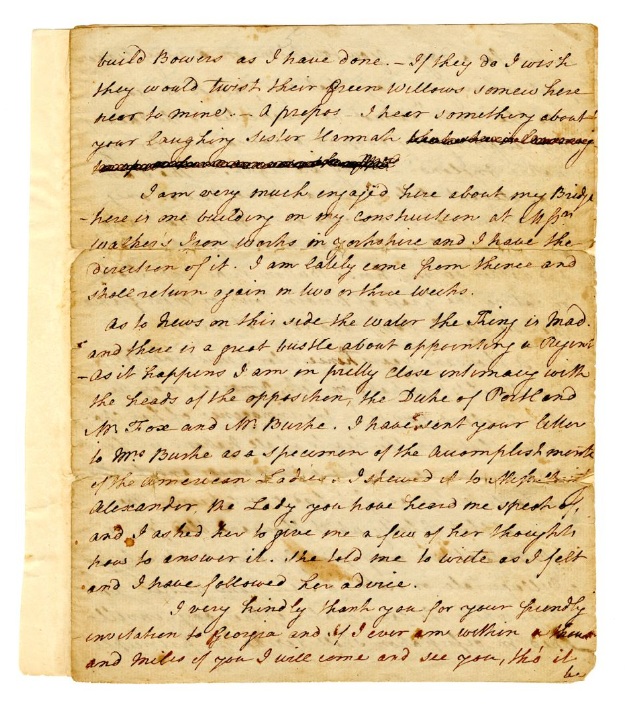 build Bowers as I have done. – If they do I wish
they would twist their Green Willows somewhere
near to mine. – A propos – I hear something about
your laughing sister Hannah
I am very much engaged here about my Bridge
– here is one building on my construction at Messrs
Walker's Iron Works in Yorkshire and I have the
direction of it. I am lately come from thence and
shall return again in two or three weeks.
as to News on this side the water the King is Mad.
and there is a great bustle about appointing a Regent
– As it happens I am in pretty close intimacy with
the heads of the opposition, the Duke of Portland
Mr. Fox and Mr. Burke. I have sent your letter
to Mrs Burke as a specimen of the accomplishments
of the American Ladies. I shewed it to
Alexander, the Lady you have heard me speak of,
and I asked her to give me a few of her thoughts
how to answer it. She told me to write as I felt
and I have followed her advice.
I very kindly thank you for your friendly
invitation to Georgia and If I ever am within a thous
and miles of you I will come and see you, tho' it
be